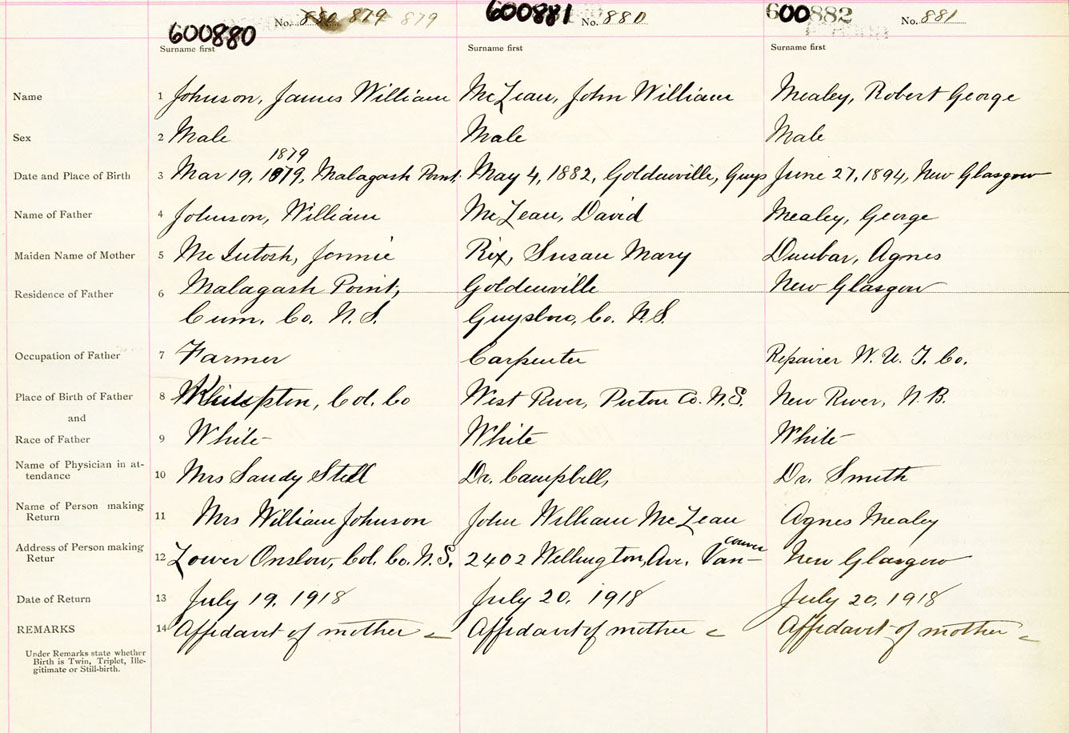 600880 No. 880 879 879
600881 No. 880
600882 No. 881
Surname first Surname first Surname first
Name 1 Johnson, James William McLean, John William Mealey, Robert George
Sex 2 Male Male Male
1879
Date and Place of Birth 3 Mar 19, 1879, Malagash Point. May 4, 1882, Goldenville, Guys June 27, 1894, New Glasgow
Name of Father 4 Johnson, William McLean, David Mealey, George
Maiden Name of Mother 5 McIntosh, Jennie Rix, Susan Mary Dunbar, Agnes
Residence of Father 6 Malagash Point, Goldenville New Glasgow
Cum. Co. N.S. Guysboro, Co. N.S.
Occupation of Father 7 Farmer Carpenter Repairer W. U. T. Co.
Place of Birth of Father 8 Col. Co West River, Pictou Co. N.S. New River, N.B.
and
Race of Father 9 White White White
Name of Physician in at-
tendance 10 Mrs Sandy Still Dr. Campbell, Dr. Smith
Name of Person making
Return 11 Mrs William Johnson John William McLean Agnes Mealey
Address of Person making
Retur 12 Lower Onslow, Col. Co. N.S. 2402 Wellington, Ave. Van- couver New Glasgow
Date of Return 13 July 19, 1918 July 20, 1918 July 20, 1918
REMARKS 14 Affidavit of mother Affidavit of mother Affidavit of mother
Under Remarks state whether
Birth is Twin, Triplet, Ille-
gitimate or Still-birth.